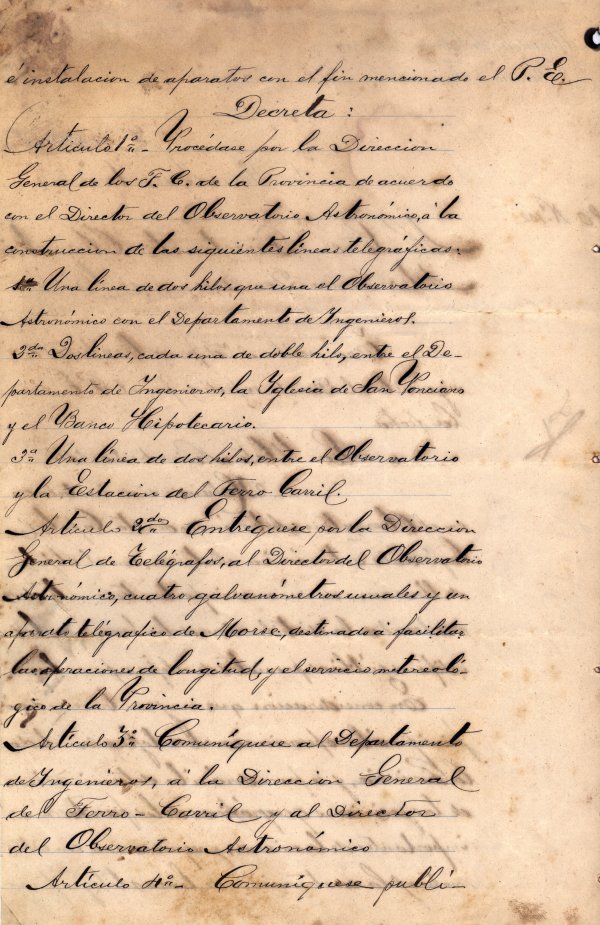 é instalacion de aparatos con el fin mencionado el P. E.
Decreta:
Artículo 1º- Procédase por la Direccion
General de los F. C. de la Provincia de acuerdo
con el Director del Observatorio Astronómico, á la
construccion de las siguientes líneas telegráficas:
1ª Una línea de dos hilos que una el Observatorio
Astronómico con el Departamento de Ingenieros.
2da Dos lineas, cada una de doble hilo, entre el De-
partamento de Ingenieros, la Iglesia de San Ponciano
y el Banco Hipotecario.
3ª Una línea de dos hilos, entre el Observatorio
y la Estacion del Ferro Carril.
Artículo 2do Entréguese por la Direccion
General de Telégrafos, al Director del Observatorio
Astronómico, cuatro galvanómetros usuales y un
aparato telégrafico de Morse, destinado á facilitar
las operaciones de longitud, y el servicio metereoló-
gico de la Provincia.
Artículo 3º Comuníquese al Departamento
de Ingenieros, á la Direccion General
del Ferro-Carril y al Director
del Observatorio Astronómico
Artículo 4º- Comuníquese publí-